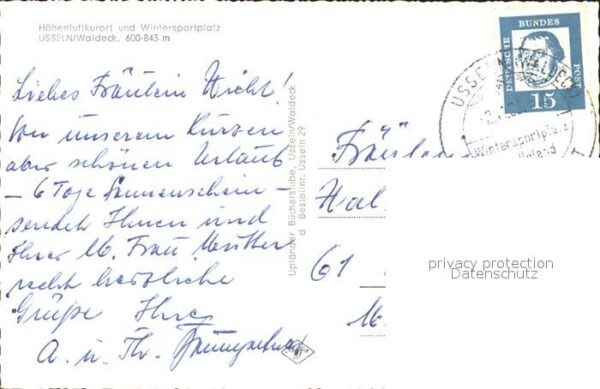 Höhenluftkurort und Wintersportplatz
USSELN/Waldeck, 600-843 m
Liebes Fräulein Hicht!
Von unserem kurzen
aber schönen Urlaub
— 6 Tage Sonnenschein —
senden Ihnen und
Ihrer lb. Frau Mutter
recht herzliche
Grüße Ihre
A. u. Th.
Upländer Bücherstube, Usseln/Waldeck
d Bestellnr. Usseln 29
DEUTSCHE BUNDES POST
15
USSELN (WALDECK)
Wintersportplatz
Fräulein
Hal
61
privacy protection
Datenschutz